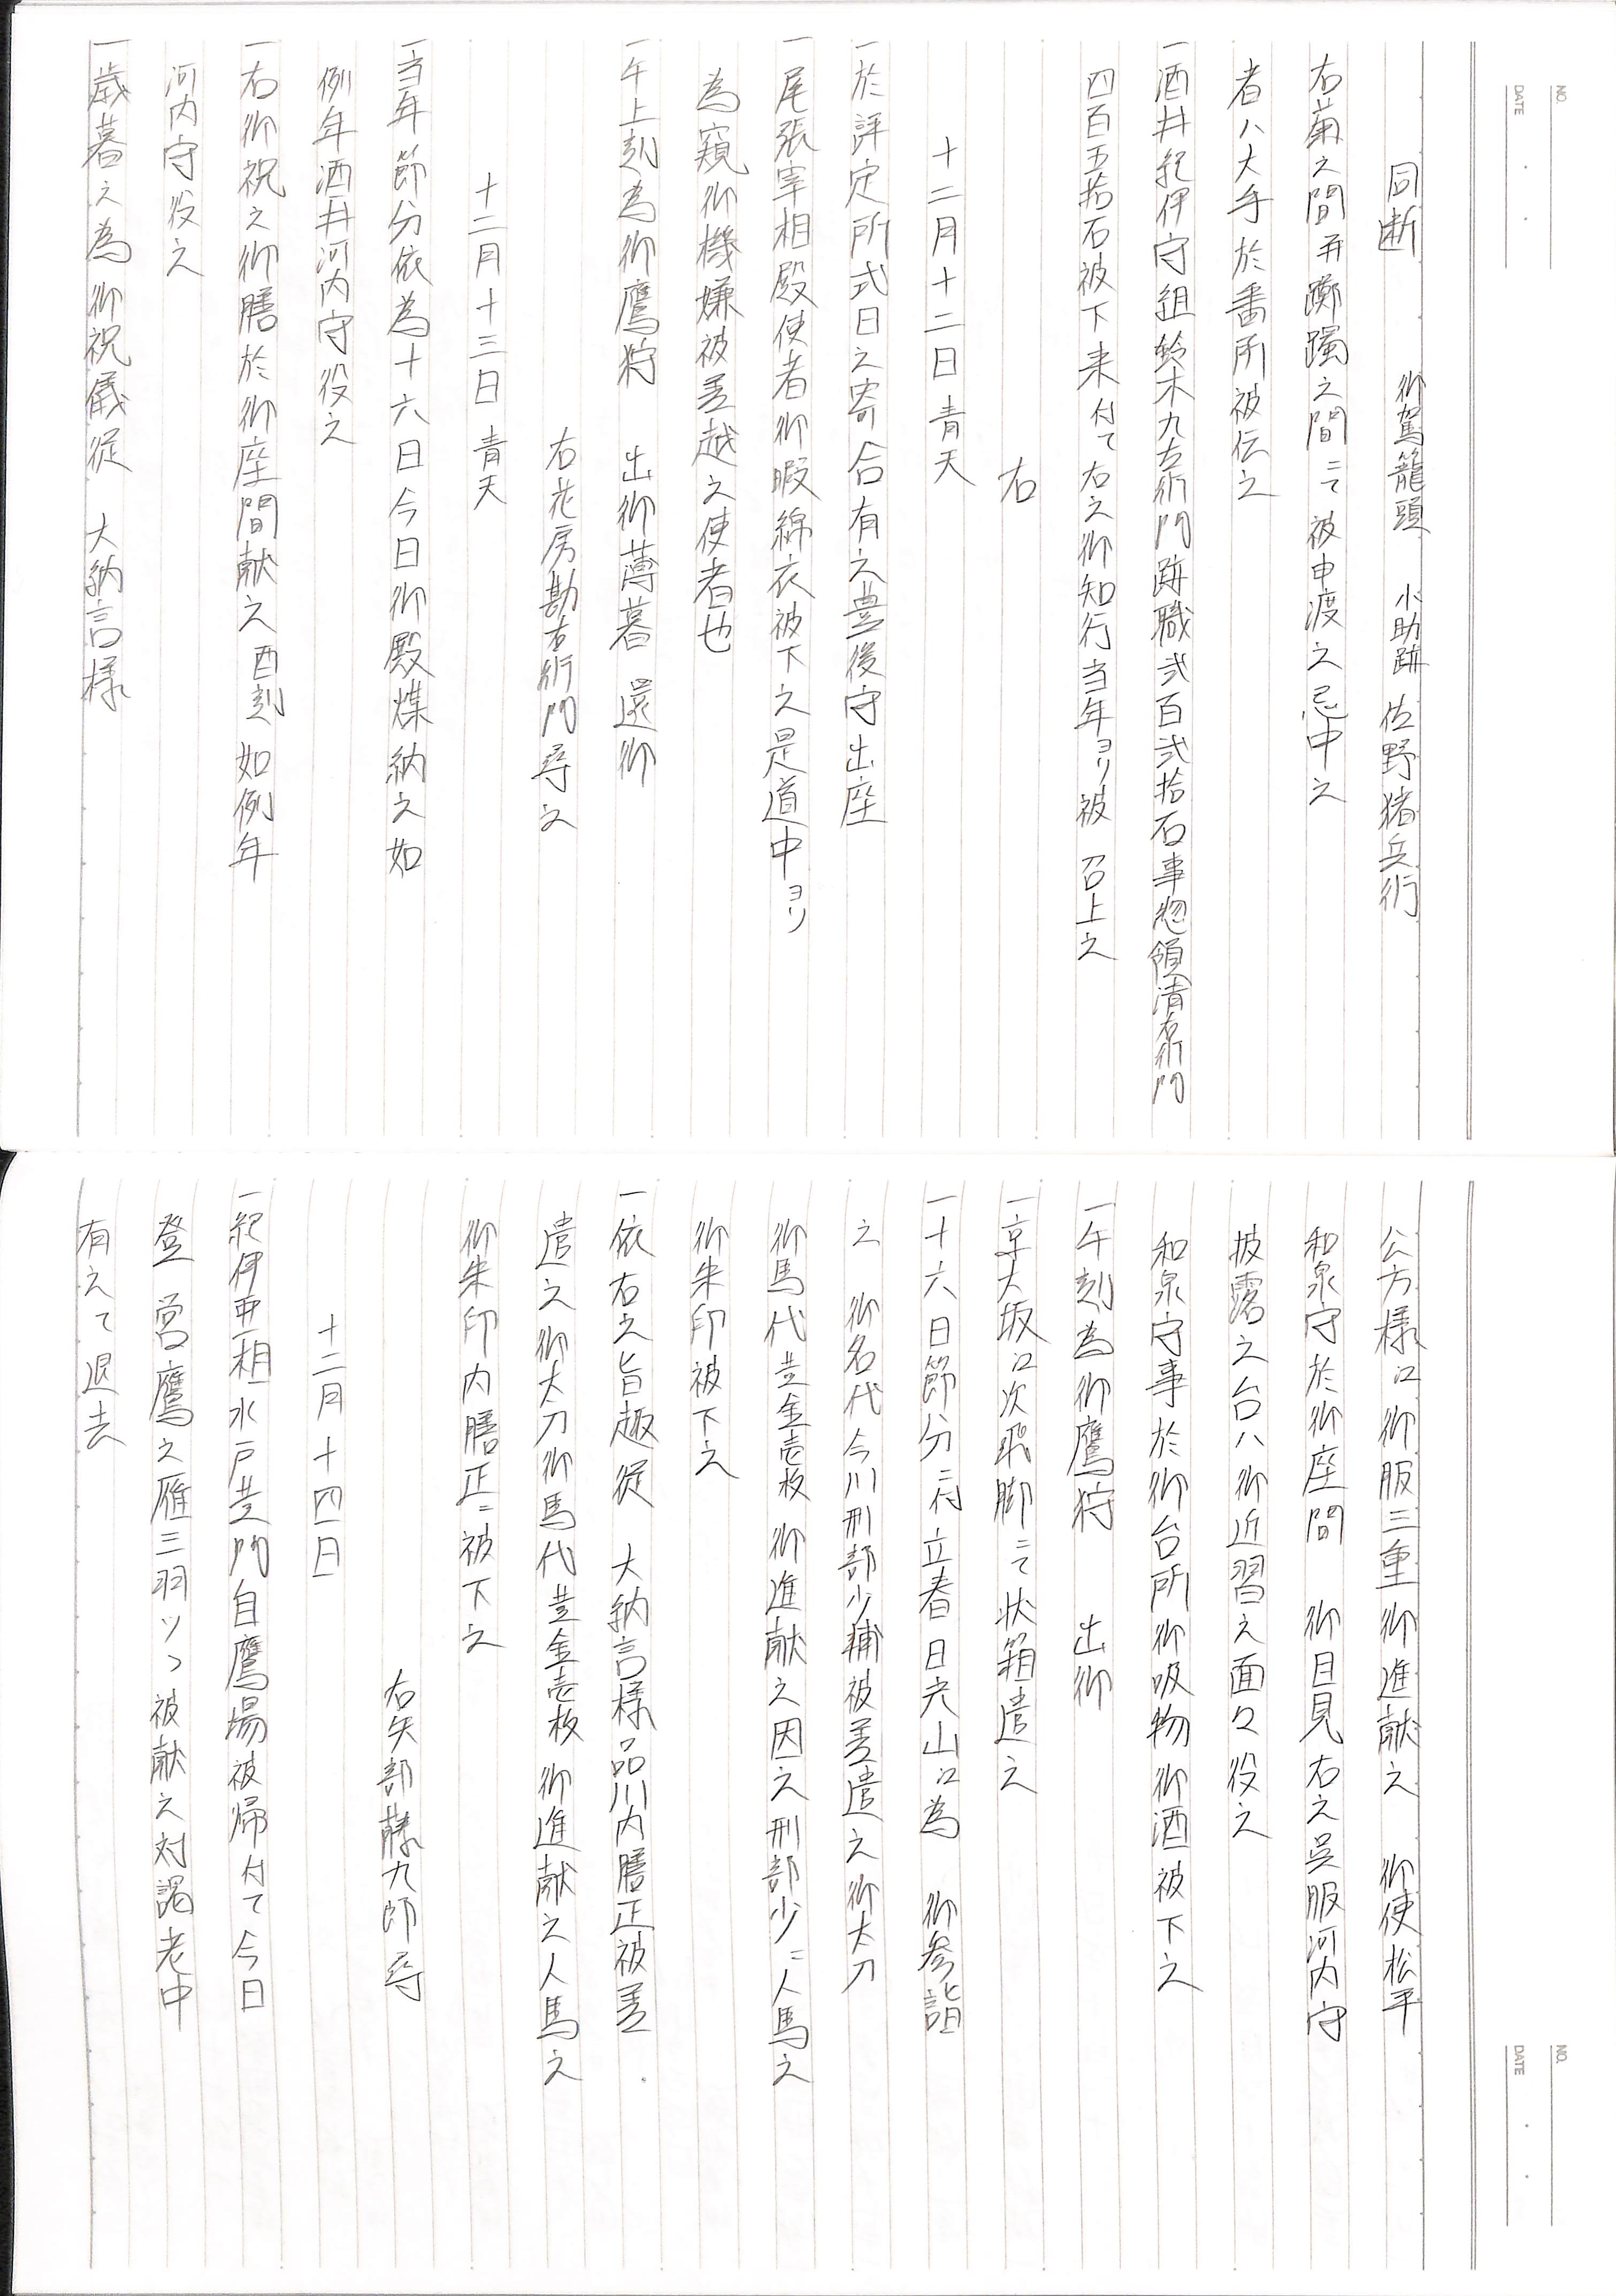 NO.
DATE
同断　御駕籠頭　小助跡　佐野猪兵衛
右菊之間并躑躅之間ニて被申渡之忌中之
者ハ大手於番所被伝之
一酒井紀伊守組鈴木九左衛門跡職弐百弐拾石事惣領清右衛門
四百五拾石被下来付て右之御知行当年ヨリ被　召上之
右
十二月十二日　青天
一於評定所式日之寄合有之豊後守出座
一尾張宰相殿使者御暇綿衣被下之是道中ヨリ
為窺御機嫌被差越之使者也
一午上刻為御鷹狩　出御薄暮　還御
右花房勘右衛門尋之
十二月十三日　青天
一当年節分依為十六日今日御殿煤納之如
例年酒井河内守役之
一右御祝之御膳於御座間献之酉刻如例年
河内守役之
一歳暮之為御祝儀従　大納言様
NO.
DATE
公方様江御服三重御進献之　御使松平
和泉守於御座間　御目見右之呉服河内守
披露之台ハ御近習之面々役之
和泉守事於御台所御吸物御酒被下之
一午刻為御鷹狩　出御
一京大坂江次飛脚ニて状箱遣之
一十六日節分ニ付立春日光山江為　御参詣
之　御名代今川刑部少輔被差遣之御太刀
御馬代並金壱枚御進献之因之刑部少ニ人馬之
御朱印被下之
一依右之旨趣従　大納言様品川内膳正被差
遣之御太刀御馬代並金壱枚御進献之人馬之
御朱印内膳正ニ被下之
右矢部藤九郎尋
十二月十四日
一紀伊亜相水戸黄門自鷹場被帰付て今日
登　営鷹之雁三羽ツヽ被献之対謁老中
有之て退去